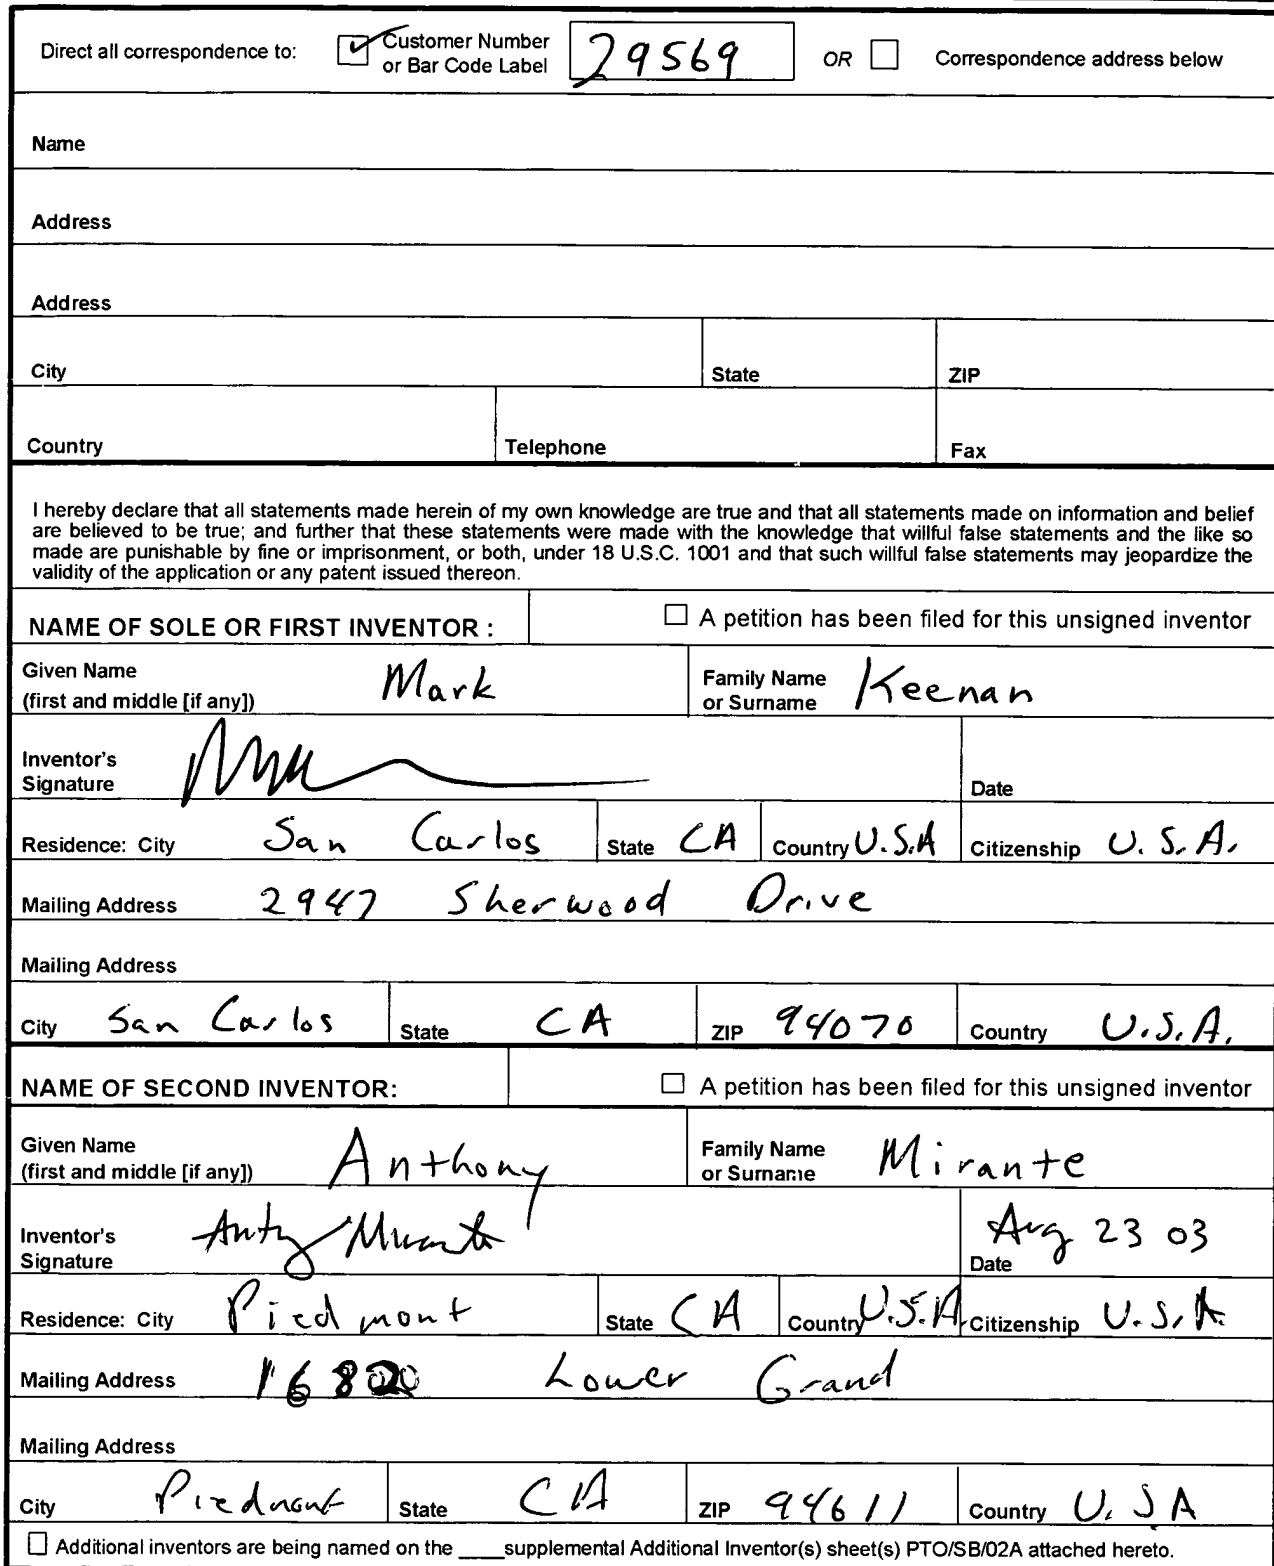 Direct all correspondence to: ☑ Customer Number or Bar Code Label 29569 OR ☐ Correspondence address below
Name
Address
Address
City State ZIP
Country Telephone Fax
I hereby declare that all statements made herein of my own knowledge are true and that all statements made on information and belief
are believed to be true; and further that these statements were made with the knowledge that willful false statements and the like so
made are punishable by fine or imprisonment, or both, under 18 U.S.C. 1001 and that such willful false statements may jeopardize the
validity of the application or any patent issued thereon.
NAME OF SOLE OR FIRST INVENTOR : ☐ A petition has been filed for this unsigned inventor
Given Name (first and middle [if any]) Mark Family Name or Surname Keenan
Inventor's Signature Date
Residence: City San Carlos State CA Country U.S.A Citizenship U.S.A.
Mailing Address 2947 Sherwood Drive
Mailing Address
City San Carlos State CA ZIP 94070 Country U.S.A.
NAME OF SECOND INVENTOR: ☐ A petition has been filed for this unsigned inventor
Given Name (first and middle [if any]) Anthony Family Name or Surname Mirante
Inventor's Signature Date Aug 23 03
Residence: City Piedmont State CA Country U.S.A. Citizenship U.S.A.
Mailing Address Lower Grand
Mailing Address
City Piedmont State CA ZIP 94611 Country U.S.A
☐ Additional inventors are being named on the ____supplemental Additional Inventor(s) sheet(s) PTO/SB/02A attached hereto.